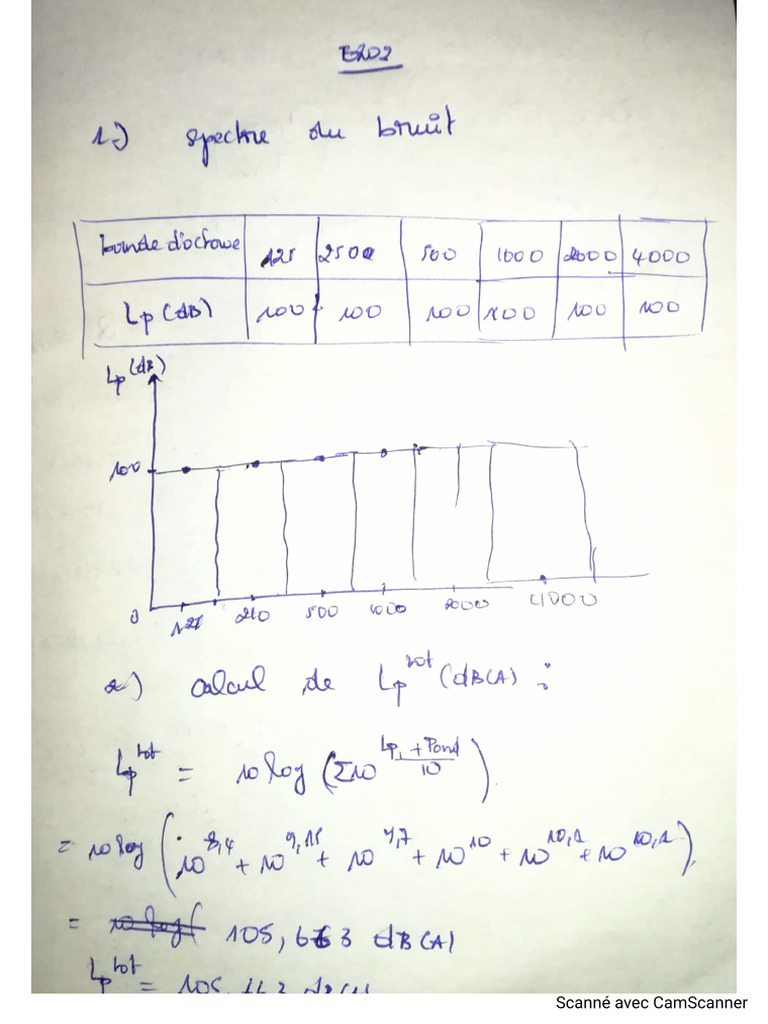 1.) spectre du bruit
bande d'octave 125 2500 500 1000 2000 4000
Lp (dB) 100 100 100 100 100 100
Lp (dB)
100
0 125 250 500 1000 2000 4000
2.) calcul de Lp^tot (dB(A) :
Lp^tot = 10 log (Σ10^((Lpi + Pond)/10))
= 10 log (10^8,4 + 10^9,15 + 10^9,7 + 10^10 + 10^10,1 + 10^10,1)
= 105, 663 dB(A)
Lp^tot =
Scanné avec CamScanner